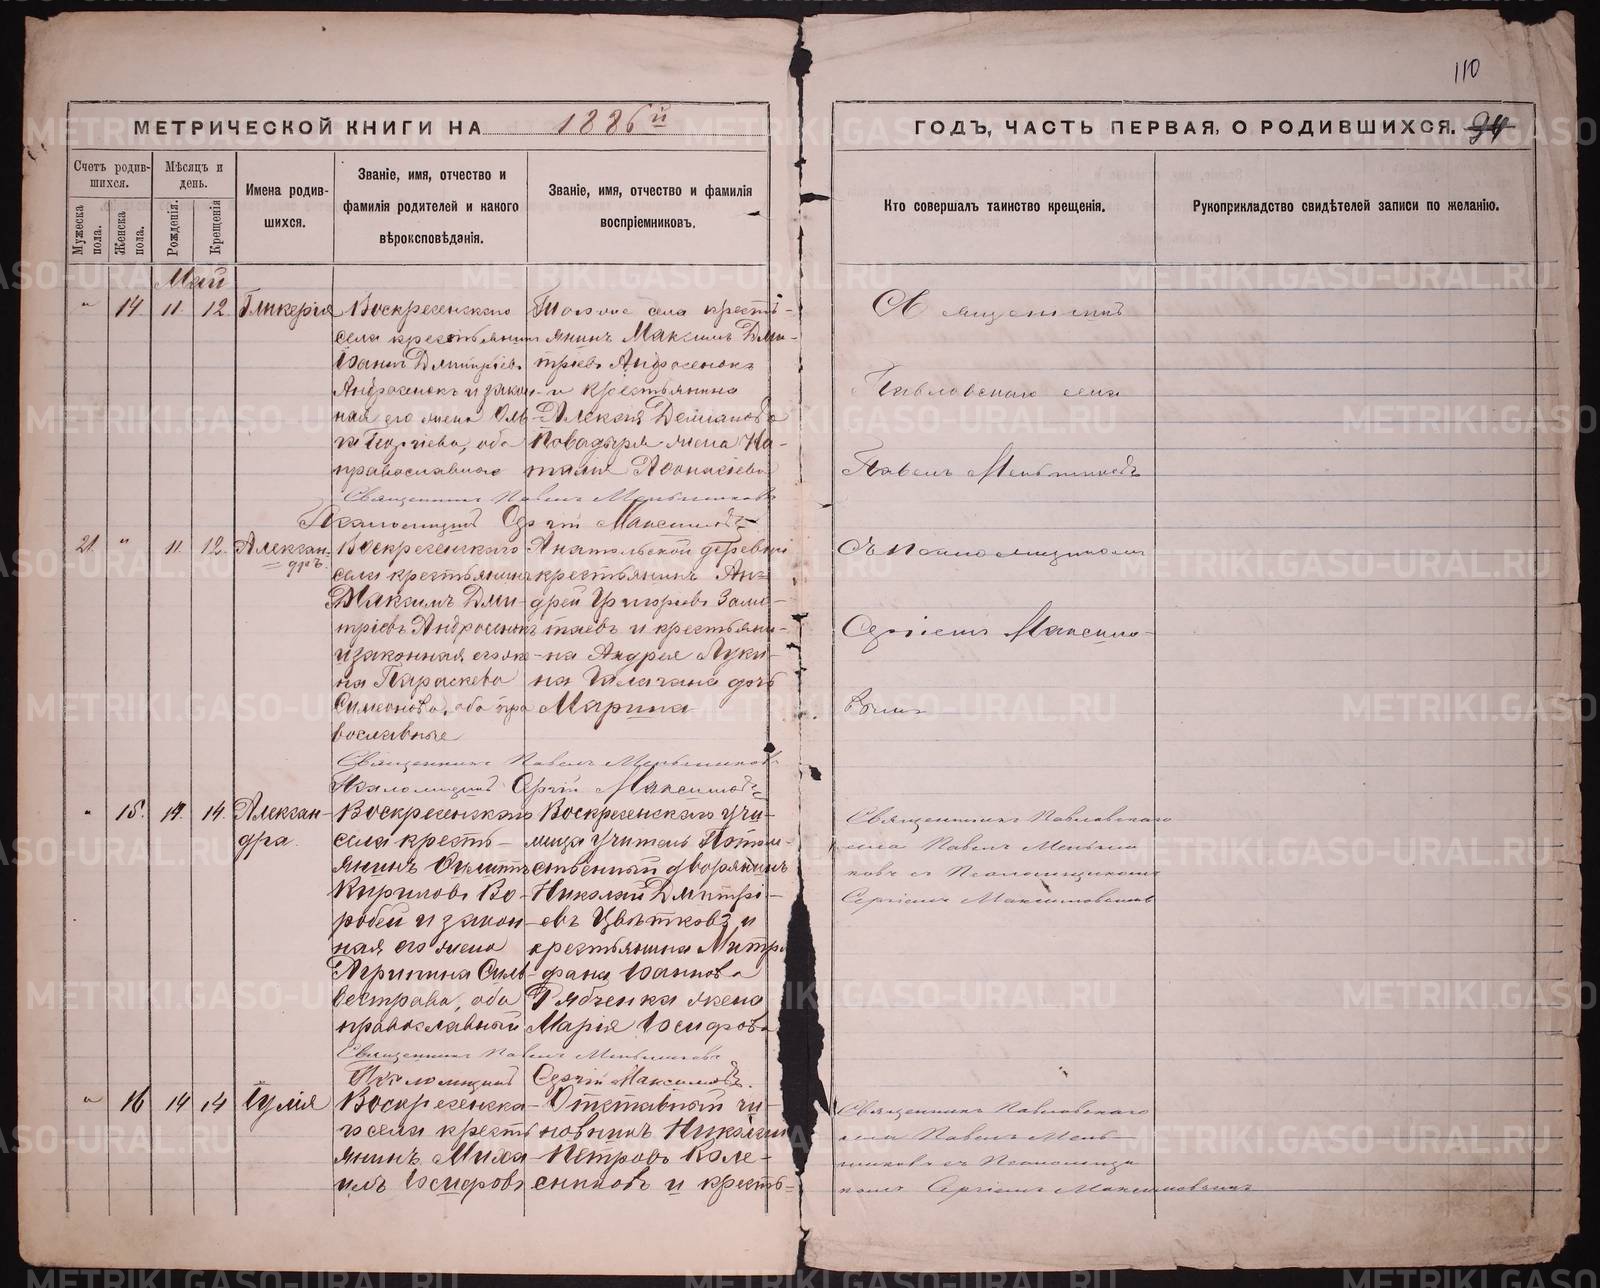 110
МЕТРИЧЕСКОЙ КНИГИ НА 1886й
ГОДЪ, ЧАСТЬ ПЕРВАЯ, О РОДИВШИХСЯ.
Счетъ родив-
шихся.
Мѣсяцъ и
день.
Мужеска
пола.
Женска
пола.
Рожденія.
Крещенія
Имена родив-
шихся.
Званіе, имя, отчество и
фамилія родителей и какого
вѣроисповѣданія.
Званіе, имя, отчество и фамилія
воспріемниковъ.
Кто совершалъ таинство крещенія.
Рукоприкладство свидѣтелей записи по желанію.
Май
" 14 11 12 Гликерія
Воскресенскаго
села крестьянинъ
Іоанъ Дмитріевъ
Андросенокъ и закон-
ная его жена Оль-
га Георгіева, оба
православнаго
села кресть-
янинъ Максимъ Дми-
тріевъ Андросенокъ
и крестьянина
Алексія
жена На-
талія Афонасіева
Священникъ Павелъ Меньшиковъ
Псаломщикъ Сергій Максимовъ
Священникъ
Павловскаго села
Павелъ Меньшиковъ
съ Псаломщикомъ
Сергіемъ Максимо-
вымъ
21 " 11 12 Алексан-
дръ.
Воскресенскаго
села крестьянинъ
Максимъ Дми-
тріевъ Андросенокъ
и законная его же-
на Параскева
Симеонова, оба пра
вославные
Анатольской деревни
крестьянинъ Ан-
дрей Григорьевъ Заме-
таевъ и крестьяни-
на Андрея Луки-
на Галагана дочь
Марина
Священникъ Павелъ Меньшиковъ
Псаломщикъ Сергій Максимовъ
" 15. 14. 14. Алексан-
дра.
Воскресенскаго
села кресть-
янинъ
Кириловъ Во-
робей и закон-
ная его жена
Агрипина Силь-
вестрова, оба
православный
Воскресенскаго учи-
лища Учитель Потом-
ственный дворянинъ
Николай Дмитрі-
евъ Цвѣтковъ и
крестьянина Митро
фана Іоаннова
Рябченка жена
Марія Іосифова
Священникъ Павелъ Меньшиковъ
Псаломщикъ Сергій Максимовъ.
Священникъ Павловскаго
села Павелъ Меньши
ковъ съ Псаломщикомъ
Сергіемъ Максимовымъ
" 16 14 14 Іулія
Воскресенска-
го села кресть
янинъ Миха-
илъ Іосифовъ
Отставный чи-
новникъ Николай
Петровъ Коле-
сниковъ и кресть-
Священникъ Павловскаго
села Павелъ Мень-
шиковъ съ Псаломщи
комъ Сергіемъ Максимовымъ
METRIKI.GASO-URAL.RU